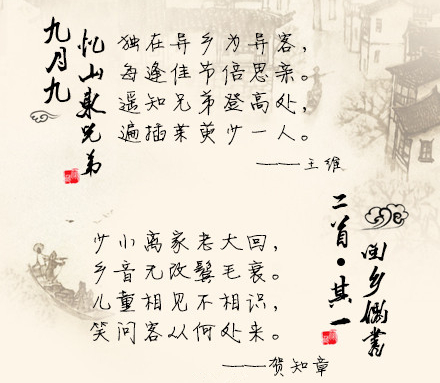 九月九
忆山东兄弟
独在异乡为异客，
每逢佳节倍思亲。
遥知兄弟登高处，
遍插茱萸少一人。
——王维
回乡偶书
二首·其一
少小离家老大回，
乡音无改鬓毛衰。
儿童相见不相识，
笑问客从何处来。
——贺知章